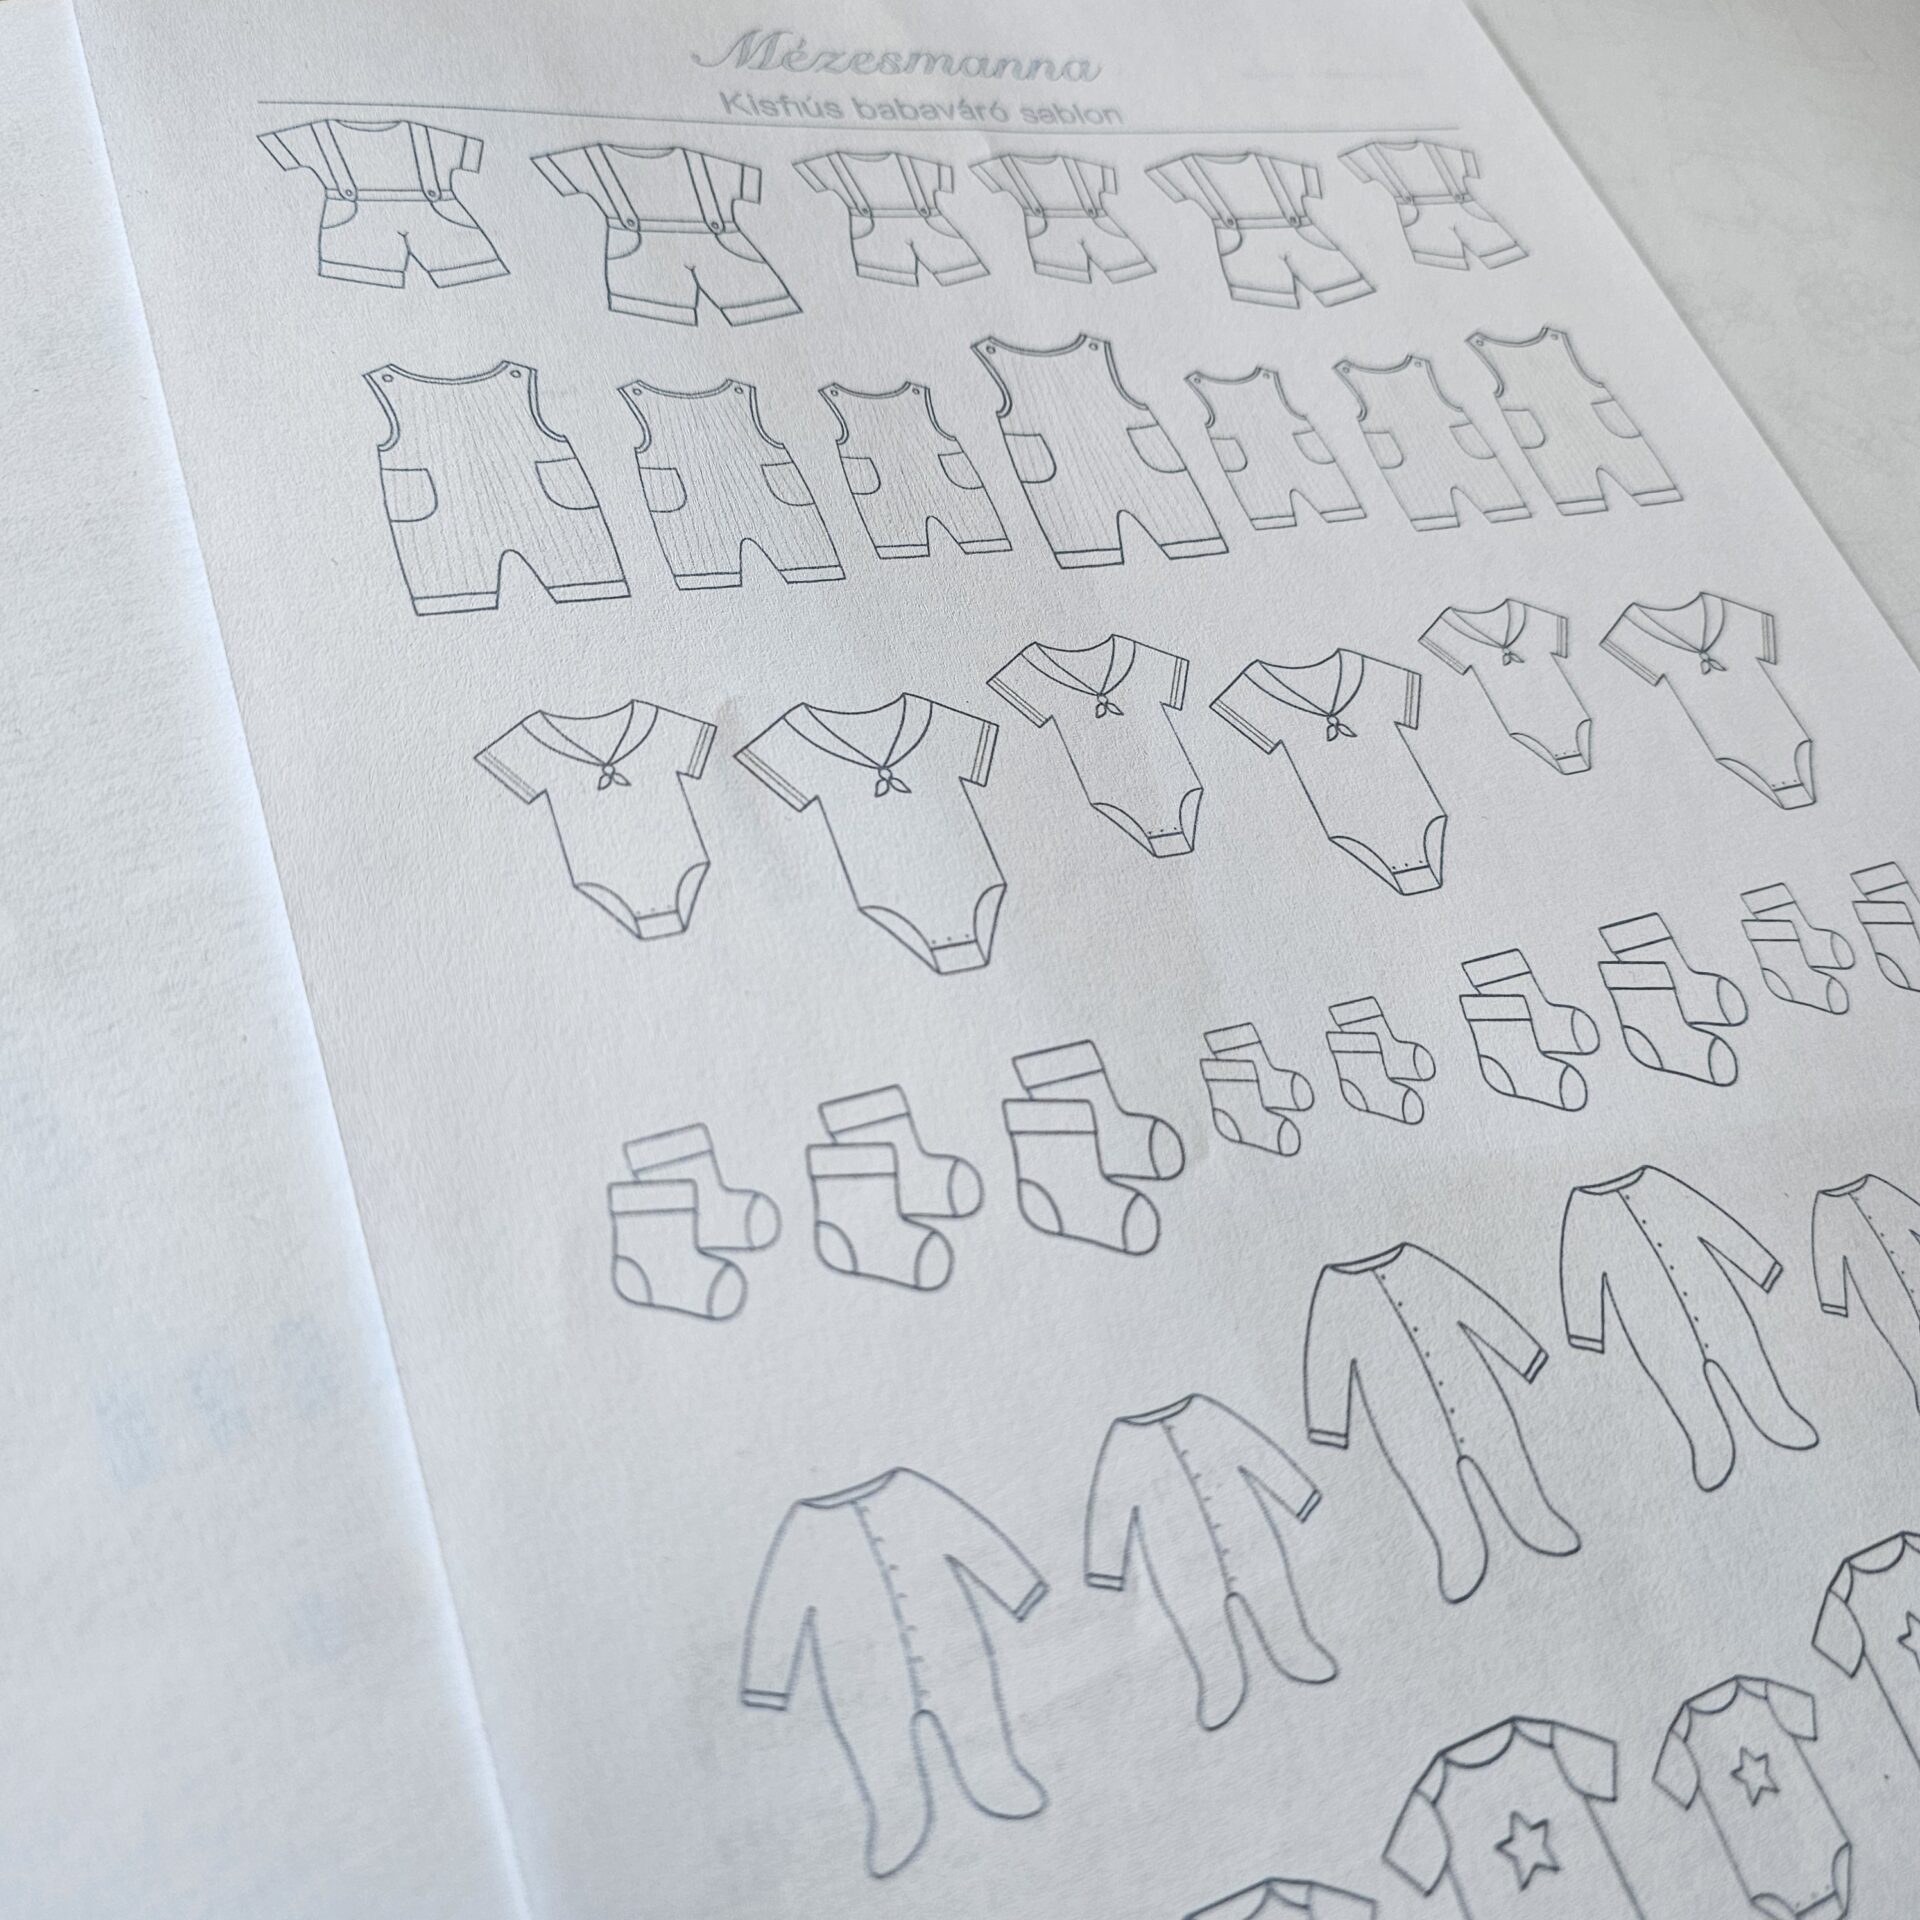 Mézesmanna
Kisfiús babaváró sablon